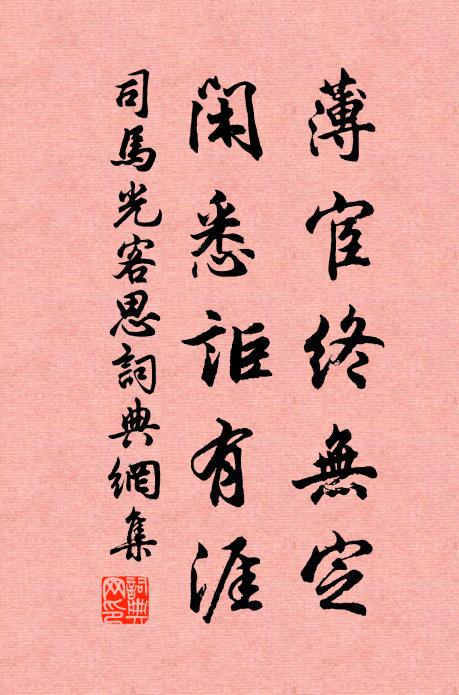 薄宦終無定
閑悉詎有涯
司馬光客思詞典網集
詞典
网印